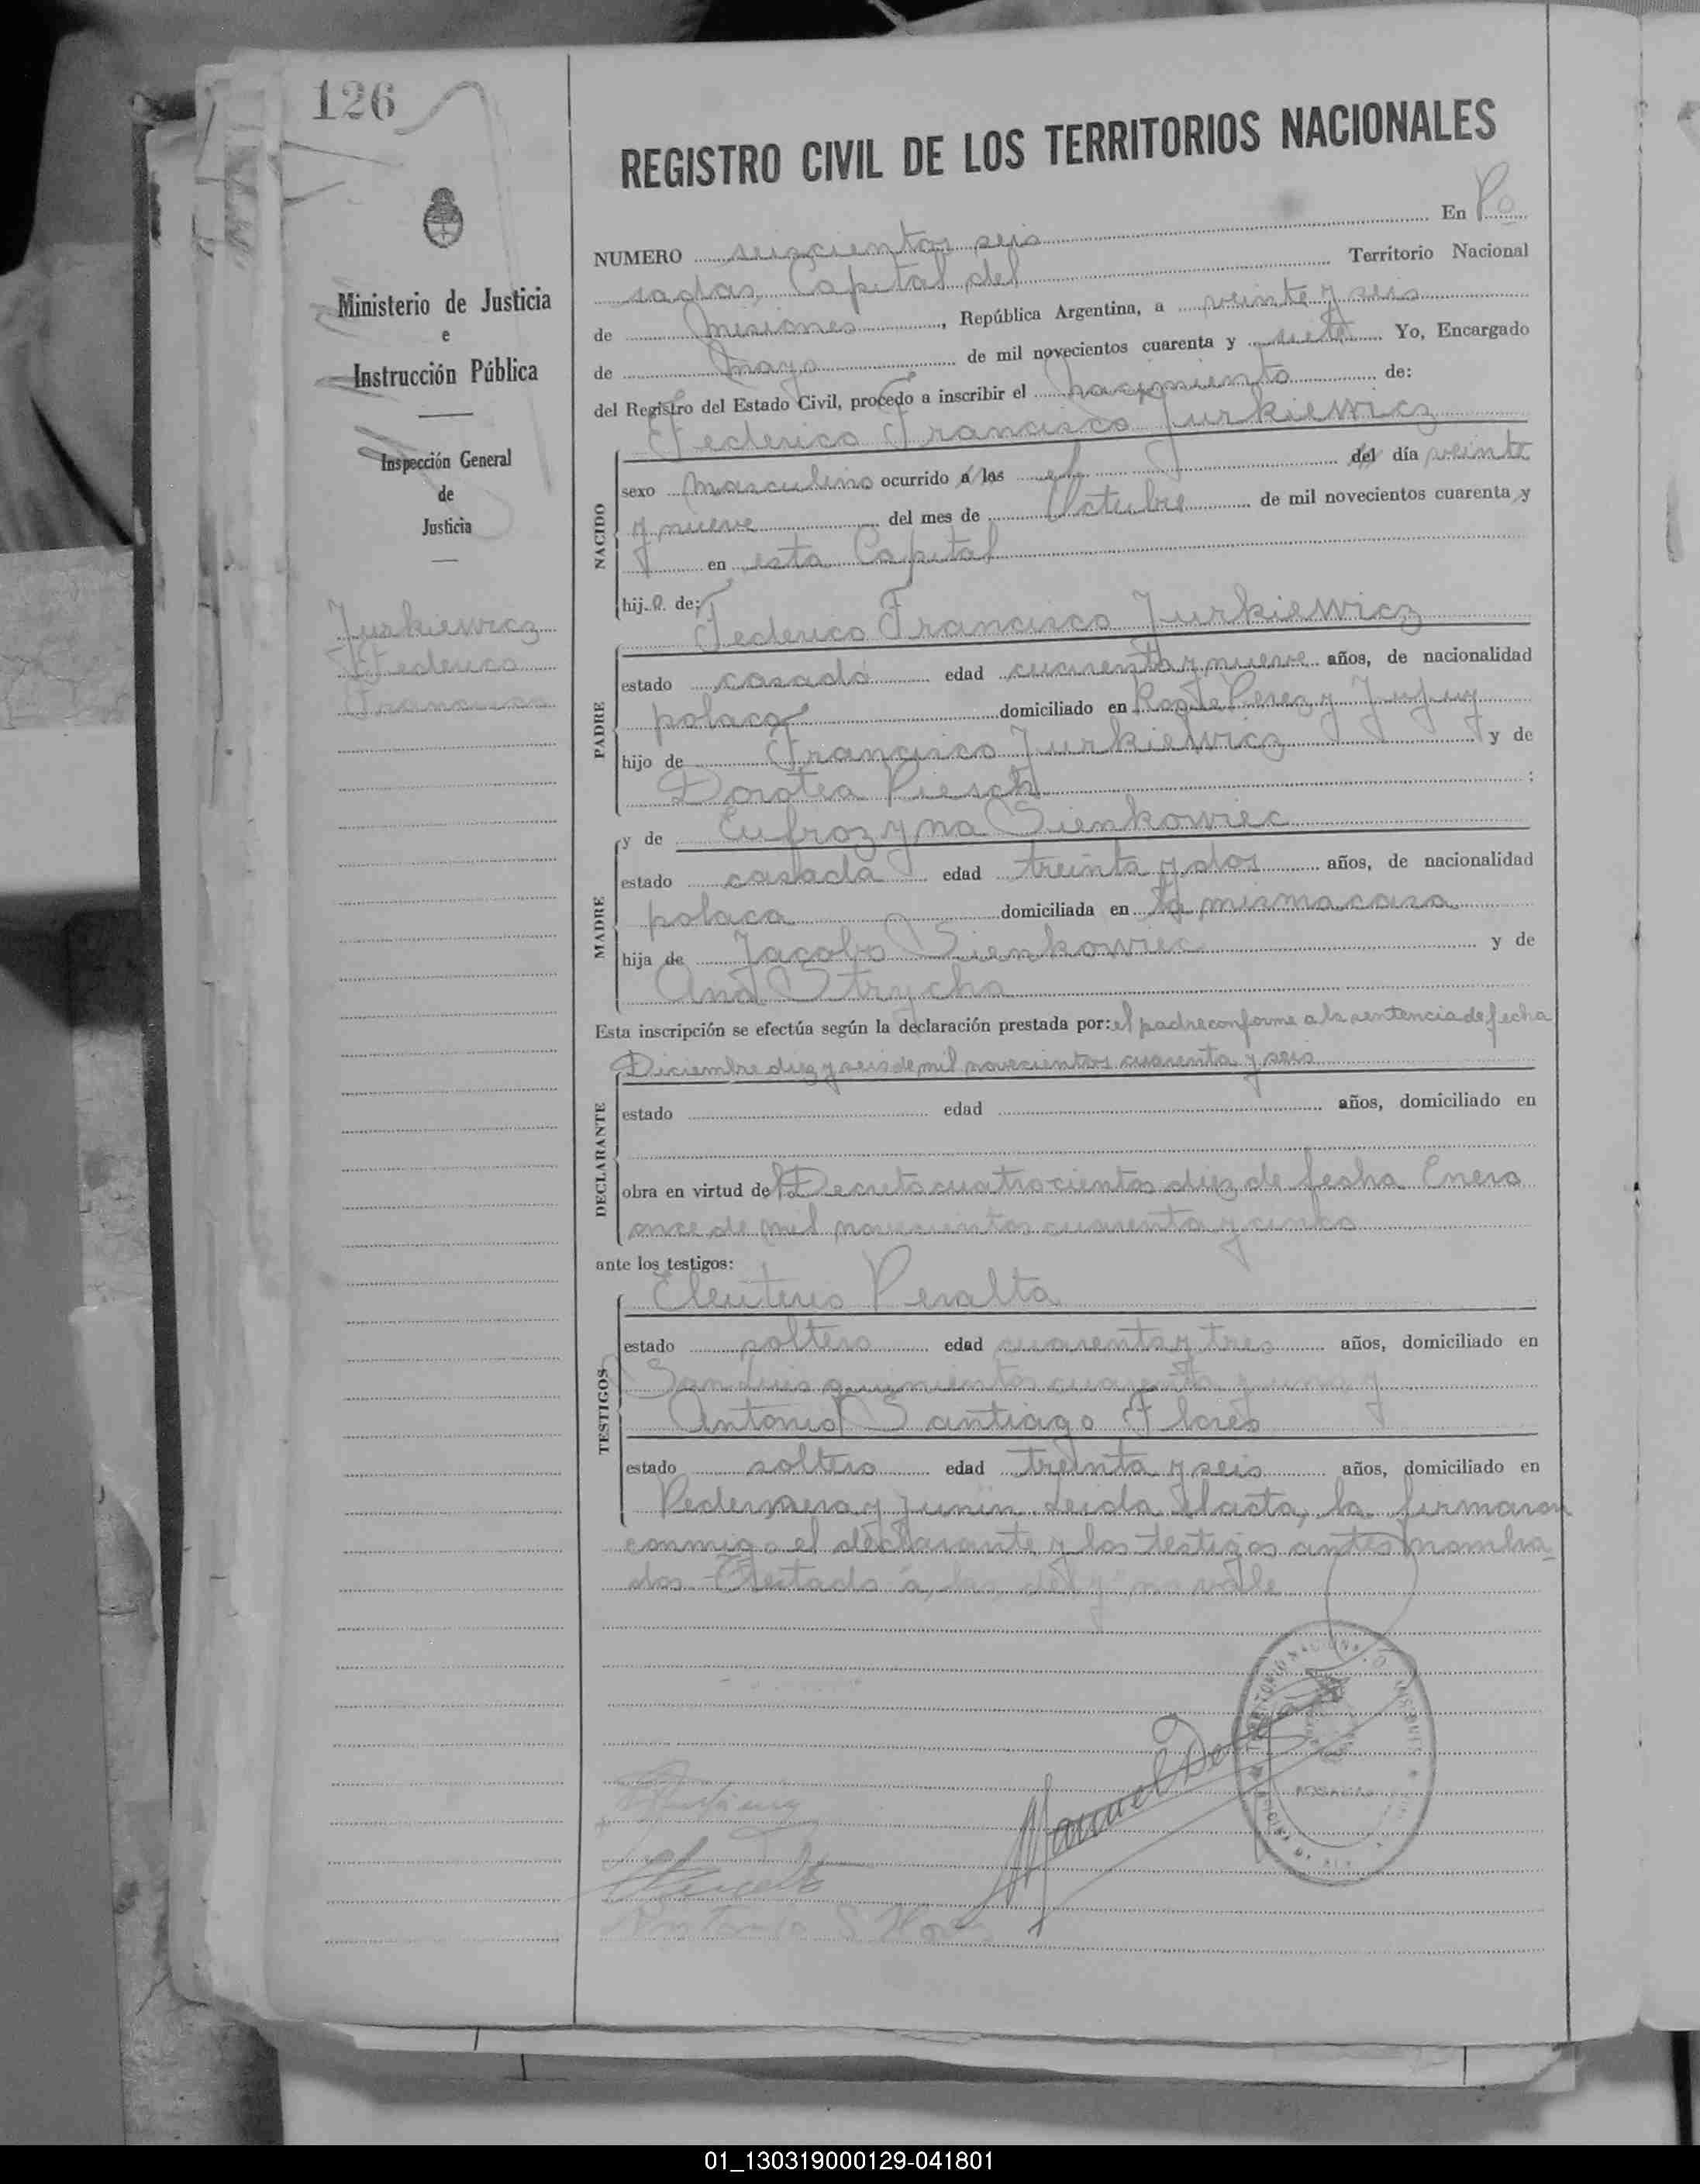 126
REGISTRO CIVIL DE LOS TERRITORIOS NACIONALES
Ministerio de Justicia
e
Instrucción Pública
Inspección General
de
Justicia
Jurkiewicz
Federico
Francisco
NUMERO seiscientos seis En Po
sadas, Capital del Territorio Nacional
de Misiones, República Argentina, a veinte y seis
de Mayo de mil novecientos cuarenta y siete Yo, Encargado
del Registro del Estado Civil, procedo a inscribir el nacimiento de:
Federico Francisco Jurkiewicz
NACIDO
sexo masculino ocurrido a las el del día veinte
y nueve del mes de Octubre de mil novecientos cuarenta y
en esta Capital
hijo de:
Federico Francisco Jurkiewicz
PADRE
estado casado edad cuarenta y nueve años, de nacionalidad
polaca domiciliado en Roque Perez y Jujuy
hijo de Francisco Jurkiewicz y de
Dorotea Piesch;
y de Eufrozyna Sienkowiec
MADRE
estado casada edad treinta y dos años, de nacionalidad
polaca domiciliada en la misma casa
hija de Jacobo Sienkowiec y de
Ana Strycha
Esta inscripción se efectúa según la declaración prestada por: el padre conforme a la sentencia de fecha
Diciembre diez y seis de mil novecientos cuarenta y seis
DECLARANTE
estado edad años, domiciliado en
obra en virtud del Decreto cuatrocientos diez de fecha Enero
once de mil novecientos cuarenta y cinco
ante los testigos:
Eleuterio Peralta
TESTIGOS
estado soltero edad cuarenta y tres años, domiciliado en
San Luis quinientos cuarenta y uno y
Antonio Santiago Flores
estado soltero edad treinta y seis años, domiciliado en
Pedernera y Junin. Leida el acta, la firmaron
conmigo el declarante y los testigos antes nombra
dos. Testado a, las, del y no vale
Manuel
Antonio S. Flores
POSADAS
01_130319000129-041801